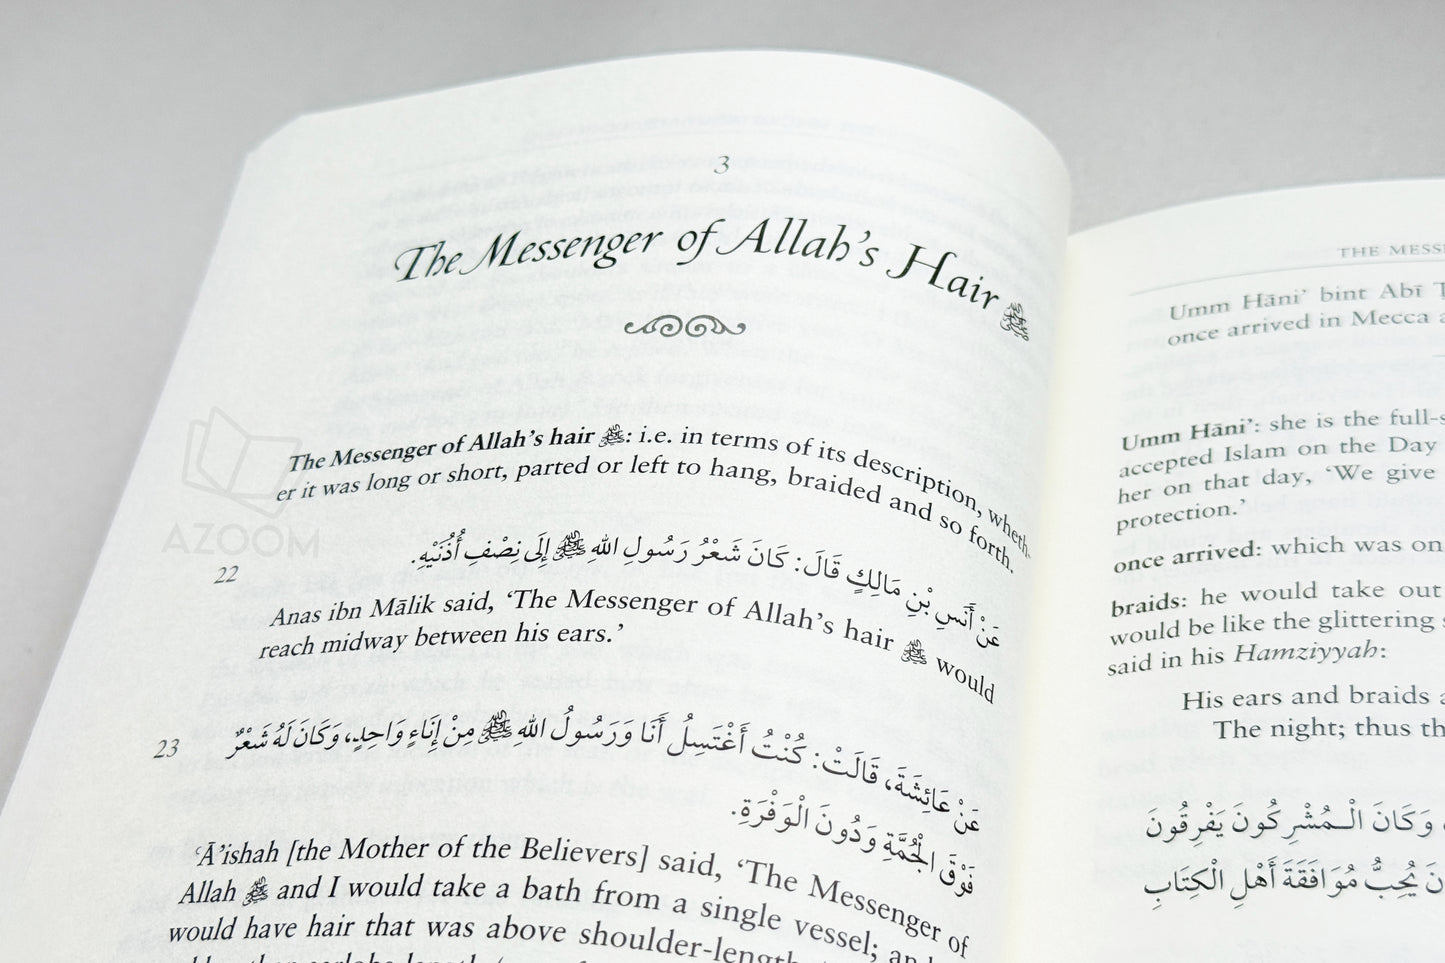 3
The Messenger of Allah's Hair ﷺ
The Messenger of Allah's hair ﷺ: i.e. in terms of its description, wheth-
er it was long or short, parted or left to hang, braided and so forth.
22
عَنْ أَنَسِ بْنِ مَالِكٍ قَالَ: كَانَ شَعْرُ رَسُولِ اللهِ ﷺ إِلَى نِصْفِ أُذُنَيْهِ.
Anas ibn Mālik said, 'The Messenger of Allah's hair ﷺ would
reach midway between his ears.'
23
عَنْ عَائِشَةَ، قَالَتْ: كُنْتُ أَغْتَسِلُ أَنَا وَرَسُولُ اللهِ ﷺ مِنْ إِنَاءٍ وَاحِدٍ، وَكَانَ لَهُ شَعْرٌ
فَوْقَ الْجُمَّةِ وَدُونَ الْوَفْرَةِ.
ʿĀ'ishah [the Mother of the Believers] said, 'The Messenger of
Allah ﷺ and I would take a bath from a single vessel; and
would have hair that was above shoulder-length
AZOOM
THE MESS
Umm Hāni' bint Abī
once arrived in Mecca
Umm Hāni': she is the full-
accepted Islam on the Day
her on that day, 'We give
protection.'
once arrived: which was on
braids: he would take out
would be like the glittering
said in his Hamziyyah:
His ears and braids
The night; thus
وَكَانَ الْمُشْرِكُونَ يَفْرِقُونَ
يُحِبُّ مُوَافَقَةَ أَهْلِ الْكِتَابِ